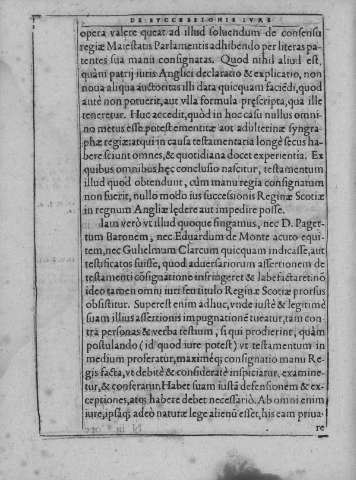 DE SVCCESSIONIS IVRE
opera valere queat ad illud soluendum de consensu
regiæ Maiestatis Parlamentis adhibendo per literas pa-
tentes sua manu consignatas. Quod nihil aliud est,
quàm patrij iuris Anglici declaratio & explicatio, non
noua aliqua auctoritas illi data quicquam faciẽdi, quod
antè non potuerit, aut vlla formula pręscripta, qua ille
teneretur. Huc accedit, quòd in hoc casu nullus omni-
no metus esse potest ementitæ aut adulterinæ syngra-
phæ regiæ: atqui in causa testamentaria longè secus ha-
bere sciunt omnes, & quotidiana docet experientia. Ex
quibus omnibus hęc conclusio nascitur, testamentum
illud quod obtendunt, cùm manu regia consignatum
non fuerit, nullo modo ius successionis Reginæ Scotiæ
in regnum Angliæ lędere aut impedire posse.
Iam verò vt illud quoque fingamus, nec D. Paget-
tum Baronem, nec Eduardum de Monte acuto equi-
tem, nec Gulielmum Clarcum quicquam indicasse, aut
testificatos fuisse, quod aduersariorum assertionem de
testamenti cõsignatione infringeret & labefactaret: nõ
ideo tamen omni iuri seu titulo Reginæ Scotiæ prorsus
obsistitur. Superest enim adhuc, vnde iustè & legitimè
suam illius assertionis impugnationẽ tueatur, tam con-
tra personas & verba testium, si qui prodierint, quàm
postulando (id quod iure potest) vt testamentum in
medium proferatur, maximéq; consignatio manu Re-
gis facta, vt debitè & consideratè inspiciatur, examine-
tur, & conferatur. Habet suam iustã defensionem & ex-
ceptiones, atq; habere debet necessariò. Ab omni enim
iure, ipsaq; adeò naturæ lege alienũ esset, his eam priua-
re